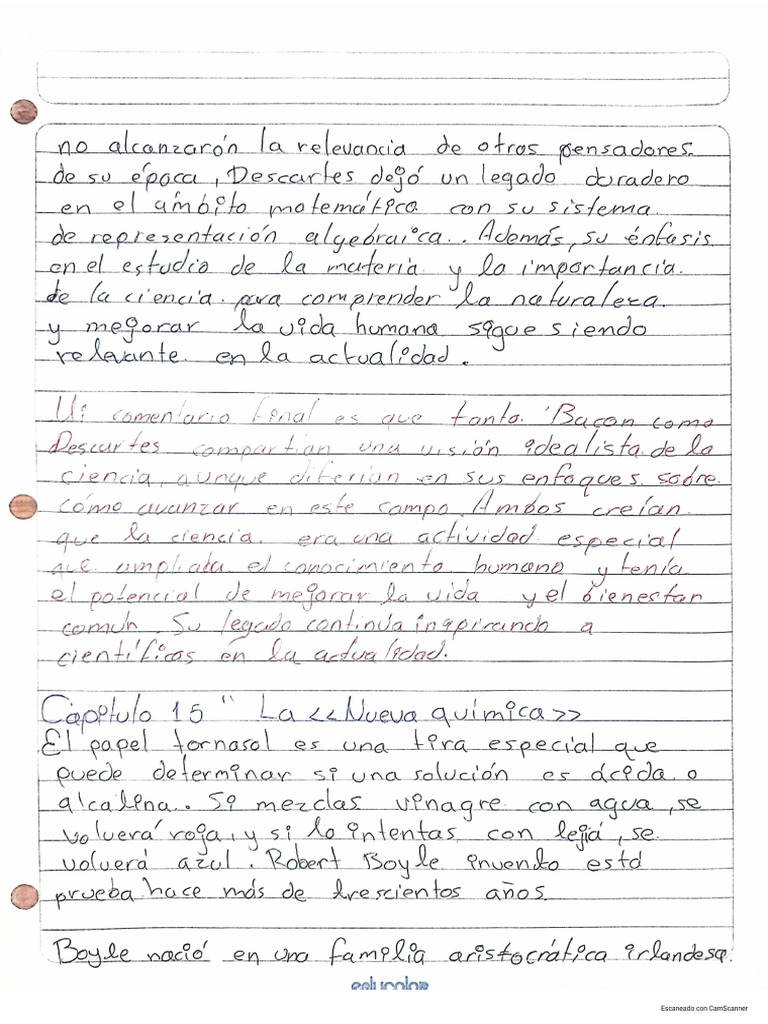 no alcanzarón la relevancia de otros pensadores
de su época, Descartes dejó un legado duradero
en el ámbito matemática con su sistema
de representación algebraica. Además, su énfasis
en el estudio de la materia y la importancia
de la ciencia para comprender la naturaleza
y mejorar la vida humana sigue siendo
relevante en la actualidad.
Mi comentario final es que tanto Bacon como
Descartes compartían una visión idealista de la
ciencia, aunque diferían en sus enfoques sobre
cómo avanzar en este campo. Ambos creían
que la ciencia era una actividad especial
que ampliaba el conocimiento humano y tenía
el potencial de mejorar la vida y el bienestar
común Su legado continúa inspirando a
científicos en la actualidad.
Capítulo 15 " La <<Nueva química>>
El papel tornasol es una tira especial que
puede determinar si una solución es ácida o
alcalina. Si mezclas vinagre con agua, se
volverá roja, y si lo intentas con lejiá, se
volverá azul. Robert Boyle invento está
prueba hace más de trescientos años.
Boyle nació en una familia aristocrática irlandesa.
educolor
Escaneado con CamScanner